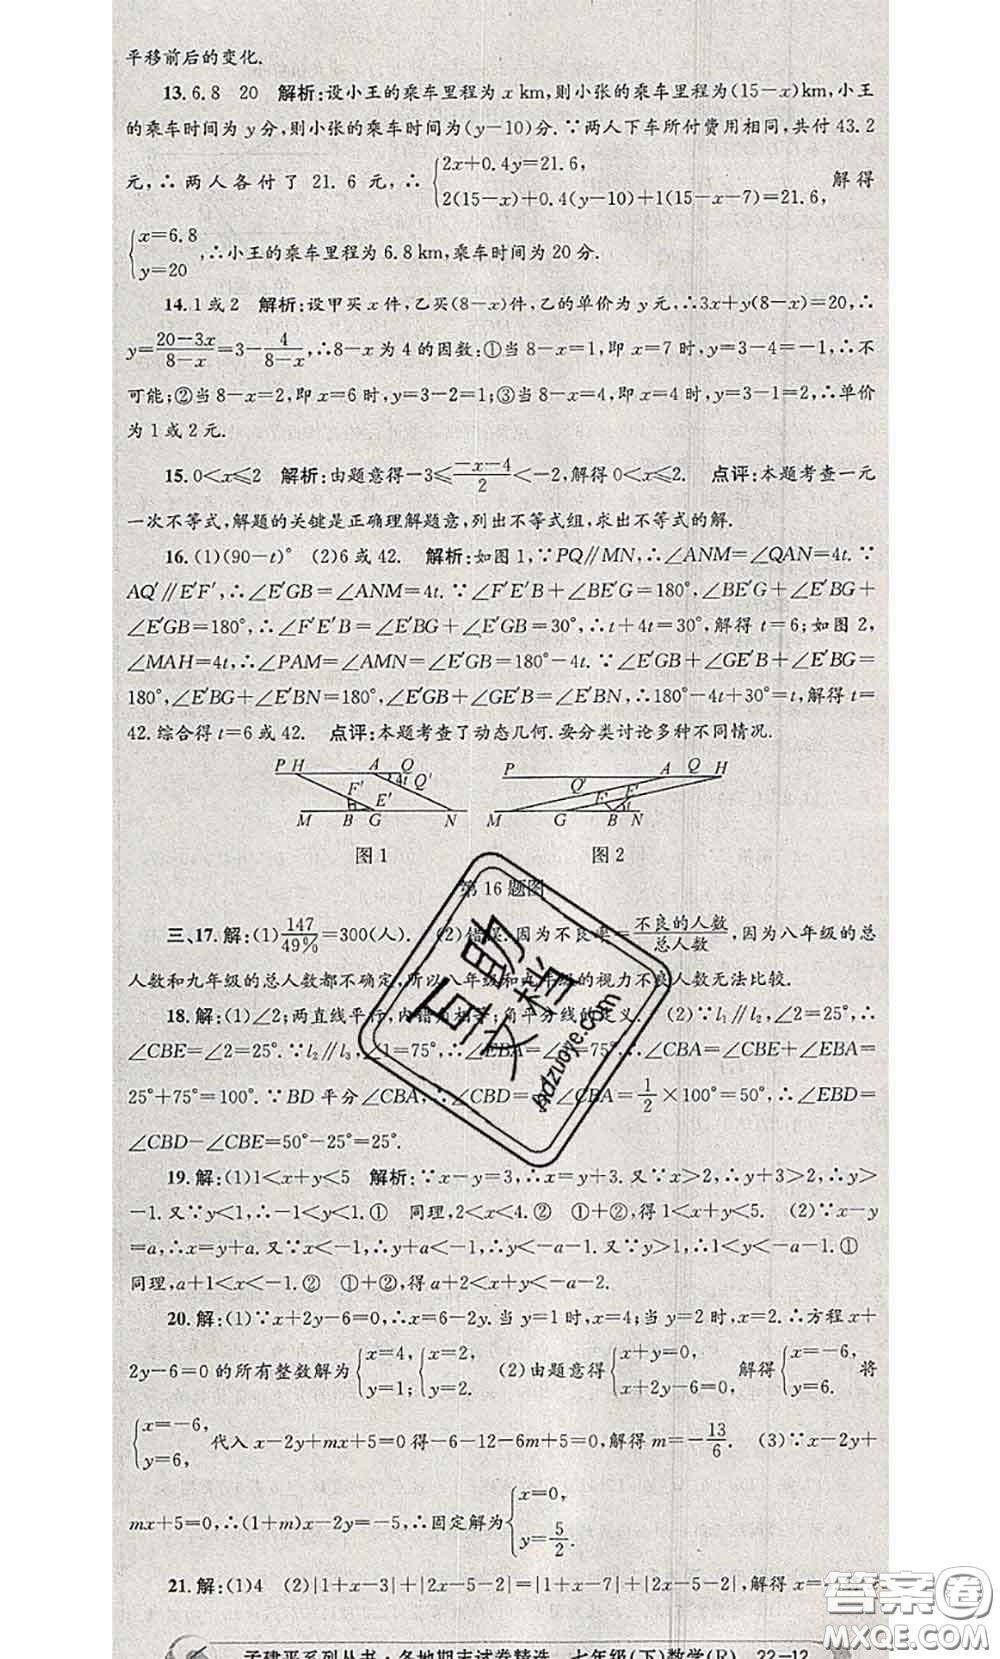 平移前后的变化.
13. 6.8 20 解析:设小王的乘车里程为 x km,则小张的乘车里程为(15-x)km,小王
的乘车时间为 y分,则小张的乘车时间为(y-10)分.∵两人下车所付费用相同,共付 43.2
元,∴两人各付了 21.6 元,∴ {2x+0.4y=21.6, 2(15-x)+0.4(y-10)+1(15-x-7)=21.6, 解得
{x=6.8 y=20 ,∴小王的乘车里程为 6.8 km,乘车时间为 20 分.
14. 1或2 解析:设甲买 x 件,乙买(8-x)件,乙的单价为 y元,∴3x+y(8-x)=20,∴
y=(20-3x)/(8-x)=3-4/(8-x),∴8-x 为 4 的因数:①当 8-x=1,即 x=7 时,y=3-4=-1,∴不
可能;②当 8-x=2,即 x=6 时,y=3-2=1;③当 8-x=4,即 x=4 时,y=3-1=2,∴单价
为 1 或 2 元.
15. 0<x≤2 解析:由题意得-3≤(-x-4)/2<-2,解得 0<x≤2. 点评:本题考查一元
一次不等式,解题的关键是正确理解题意,列出不等式组,求出不等式的解.
16. (1)(90-t)° (2)6 或 42. 解析:如图 1,∵PQ∥MN,∴∠ANM=∠QAN=4t.∵
AQ′∥E′F′,∴∠E′GB=∠ANM=4t.∵∠F′E′B+∠BE′G=180°,∠BE′G+∠E′BG+
∠E′GB=180°,∴∠F′E′B=∠E′BG+∠E′GB=30°,∴t+4t=30°,解得 t=6;如图 2,
∠MAH=4t,∴∠PAM=∠AMN=∠E′GB=180°-4t.∵∠E′GB+∠GE′B+∠E′BG=
180°,∠E′BG+∠E′BN=180°,∠E′GB+∠GE′B=∠E′BN,∴180°-4t+30°=t,解得 t=
42.综合得 t=6 或 42. 点评:本题考查了动态几何.要分类讨论多种不同情况.
P H A Q Q′ 4t F′ E′ M B G N
P Q′ A Q H F′ E′ M G B N
图 1 图 2
第 16 题图
三、17. 解:(1)147/49%=300(人). (2)错误.因为不良率=不良的人数/总人数,因为八年级的总
人数和九年级的总人数都不确定,所以八年级和九年级的视力不良人数无法比较.
18. 解:(1)∠2;两直线平行,内错角相等;角平分线的定义. (2)∵l₁∥l₂,∠2=25°,∴
∠CBE=∠2=25°.∵l₂∥l₃,∠1=75°,∴∠EBA=∠1=75°,∴∠CBA=∠CBE+∠EBA=
25°+75°=100°.∵BD 平分∠CBA,∴∠CBD=1/2∠CBA=1/2×100°=50°,∴∠EBD=
∠CBD-∠CBE=50°-25°=25°.
19. 解:(1)1<x+y<5 解析:∵x-y=3,∴x=y+3.又∵x>2,∴y+3>2,∴y>
-1.又∵y<1,∴-1<y<1.① 同理,2<x<4.② ①+②,得 1<x+y<5. (2)∵x-y
=a,∴x=y+a.又∵x<-1,∴y+a<-1,∴y<-a-1.又∵y>1,∴1<y<-a-1.①
同理,a+1<x<-1.② ①+②,得 a+2<x+y<-a-2.
20. 解:(1)∵x+2y-6=0,∴x=6-2y.当 y=1 时,x=4;当 y=2 时,x=2.∴方程 x+
2y-6=0 的所有整数解为{x=4, y=1; {x=2, y=2. (2)由题意得{x+y=0, x+2y-6=0, 解得{x=-6, y=6. 将
{x=-6, y=6, 代入 x-2y+mx+5=0 得-6-12-6m+5=0,解得 m=-13/6. (3)∵x-2y+
mx+5=0,∴(1+m)x-2y=-5,∴固定解为{x=0, y=5/2.
21. 解:(1)4 (2)|1+x-3|+|2x-5-2|=|1+x-7|+|2x-5-2|,解得 x=
孟建平系列丛书·各地期末试卷精选 七年级(下)数学(R) 22-12
互助文档
hdzuoye.com
答案圈
MXQE.COM